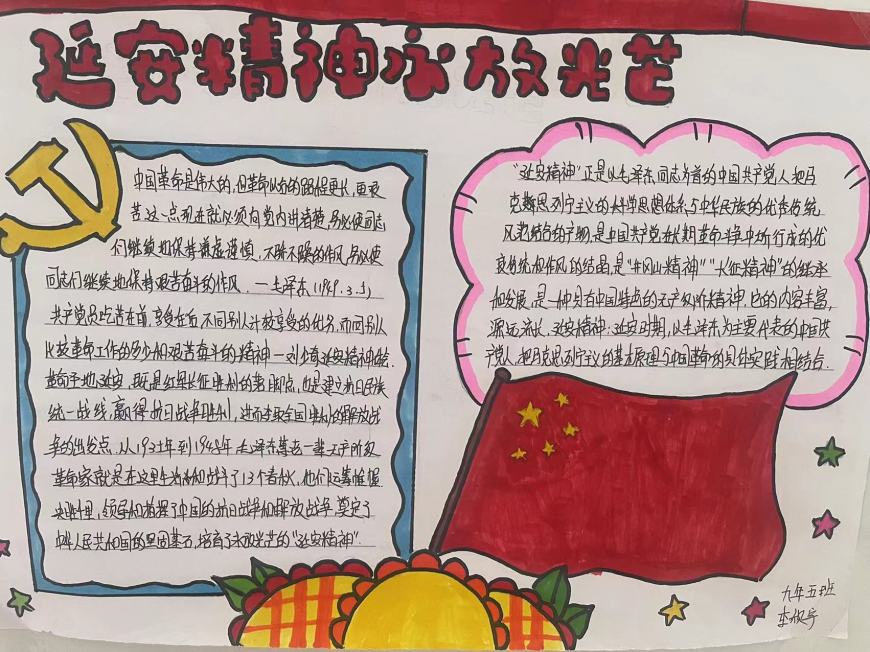 延安精神永放光芒
中国革命是伟大的，但革命以后的路程更长，更艰
苦，这一点现在就必须向党内讲清楚，务必使同志
们继续地保持谦虚谨慎、不骄不躁的作风，务必使
同志们继续地保持艰苦奋斗的作风。——毛泽东(1949.3.5)
共产党员吃苦在前，享受在后，不同别人计较享受的优劣，而同别人
比较革命工作的多少和艰苦奋斗的精神——刘少奇延安精神
革命圣地延安，既是红军长征胜利的落脚点，也是建立抗日民族
统一战线，赢得抗日战争胜利，进而夺取全国胜利的解放战
争的出发点。从1935年到1948年，毛泽东等老一辈无产阶级
革命家就是在这里生活和战斗了13个春秋，他们运筹帷幄，
决胜千里，领导和指挥了中国的抗日战争和解放战争，奠定了
中华人民共和国的坚固基石，培育了永放光芒的“延安精神”。
“延安精神”正是以毛泽东同志为首的中国共产党人把马
克思列宁主义的科学思想体系与中华民族的优秀传统
风范结合的产物，是中国共产党在长期革命斗争中所行成的优
良传统和作风的结晶，是“井冈山精神”“长征精神”的继承
和发展，是一种具有中国特色的无产阶级精神，它的内容丰富，
源远流长。延安精神：延安时期，以毛泽东为主要代表的中国共
产党人，把马克思列宁主义的基本原理与中国革命的具体实践相结合.
九年五班